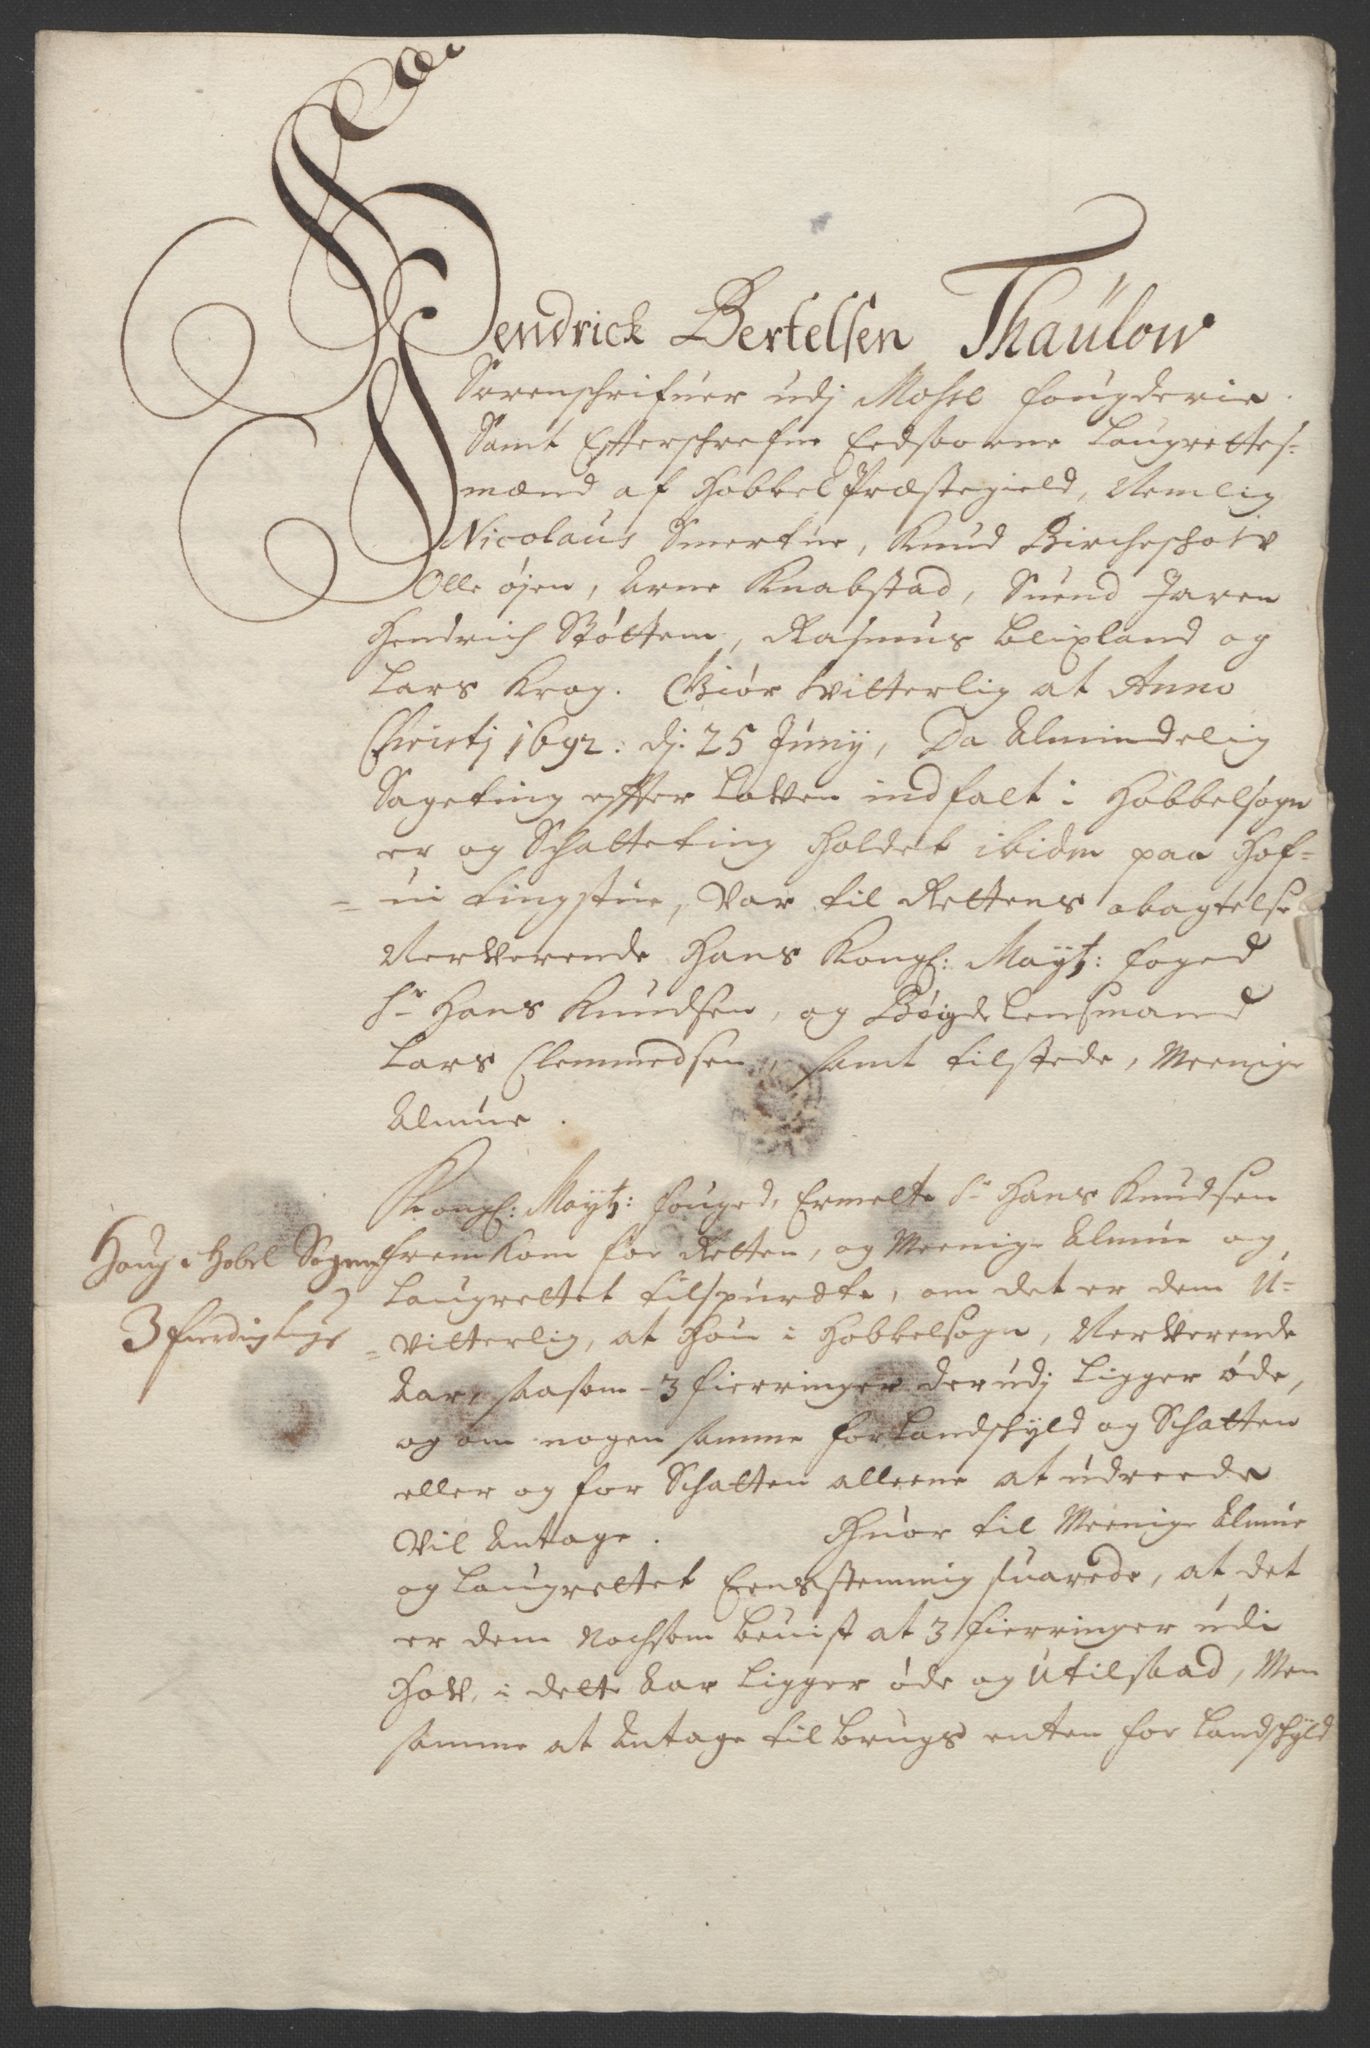 Hendrick Bertelsen Thaülow
Sorenschrifuer udj Mosse fougderie.
Samt Effterschrefne Eedsoorne Laugrettes-
mænd af Hobbel Præstegield, Nemlig
Nicolaus Smertue, Knud Bircheschou
Olle øjen, Arne Knabstad, Suend Jaren
Hendrich Støttem, Rasmus Blixland og
Lars Krog. Giør witterlig at Anno
Christj 1692: dj: 25 Junij, Da Almindelig
Sageting effter Lowen indfalt i Hobbelsogn
er og Schatteting holdet ibidm paa Hof-
=ui tingstue, war til Rettens abagtelse
Nerwerende Hans Kongl: Maytz: foged
Sr Hans Knudsen, og Bøigde Lensmand
Lars Clemmedsen, samt tilstede, Meenige
Almue.
Kongl: Maytz: fouged, Ermelte Sr Hans Knudsen
fremkom for Retten, og Meenige Almue og
Laugrettet tilspurdte, om det er dem U-
=vitterlig, at Hou i Hobbelsogn, Nerwerende
Aar, saasom 3 fierringer der udj ligger øde,
og om nogen samme for Landschyld og Schatten
eller og for Schatten alleene at udreede
vil Antage. Huor til Meenige Almue
og Laugrettet Eensstemmig suarede, at det
er dem Nochsom beuist at 3 fierringer udi
How, i dette Aar ligger øde og Utilsaad, Men
samme at Antage til brugs enten for Landschyld
Houg i Hobel Sogn
3 fierding